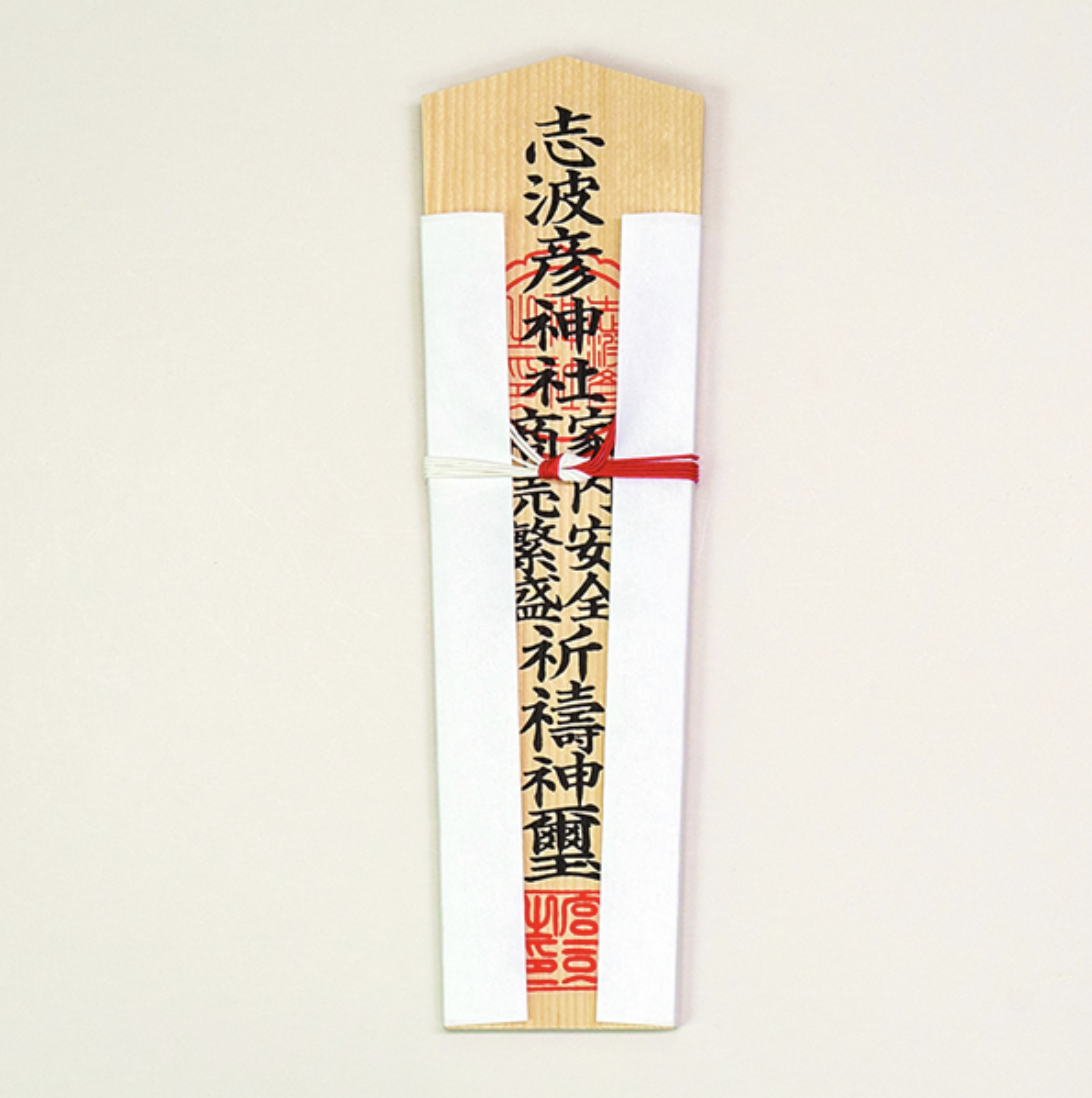 志波彦神社
家内安全
商売繁盛
祈禱神璽